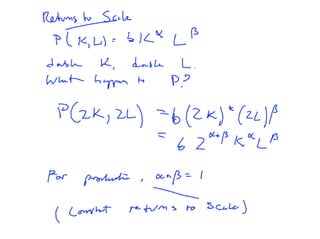 Returns to Scale
P(K,L) = bK^α L^β
double K, double L.
What happens to P?
P(2K, 2L) = b(2K)^α (2L)^β
= b 2^{α+β} K^α L^β
For production, α+β = 1
(constant returns to scale)